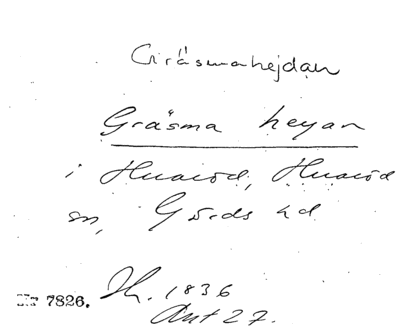 Gräsmahejdan
Gräsma heyan
i Huaröd, Huaröd
sn, Gärds hd
Nr 7826. Th. 1836
Ant 27.